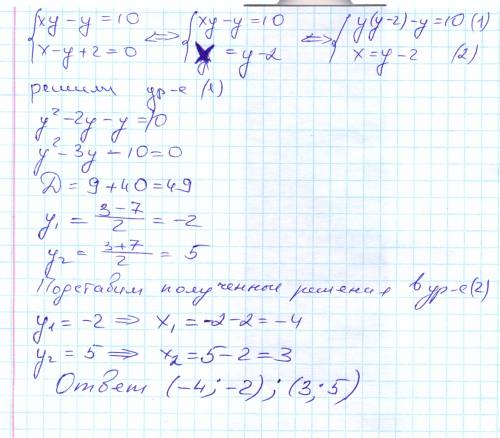 { xy - y = 10 ⇔ { xy - y = 10 ⇔ { y(y-2) - y = 10 (1)
{ x - y + 2 = 0 { x = y - 2 { x = y - 2 (2)
решили ур-е (1)
y² - 2y - y = 10
y² - 3y - 10 = 0
D = 9 + 40 = 49
y₁ = (3-7)/2 = -2
y₂ = (3+7)/2 = 5
Подставим полученные решения в ур-е (2)
y₁ = -2 ⇒ x₁ = -2-2 = -4
y₂ = 5 ⇒ x₂ = 5-2 = 3
Ответ (-4; -2); (3; 5)